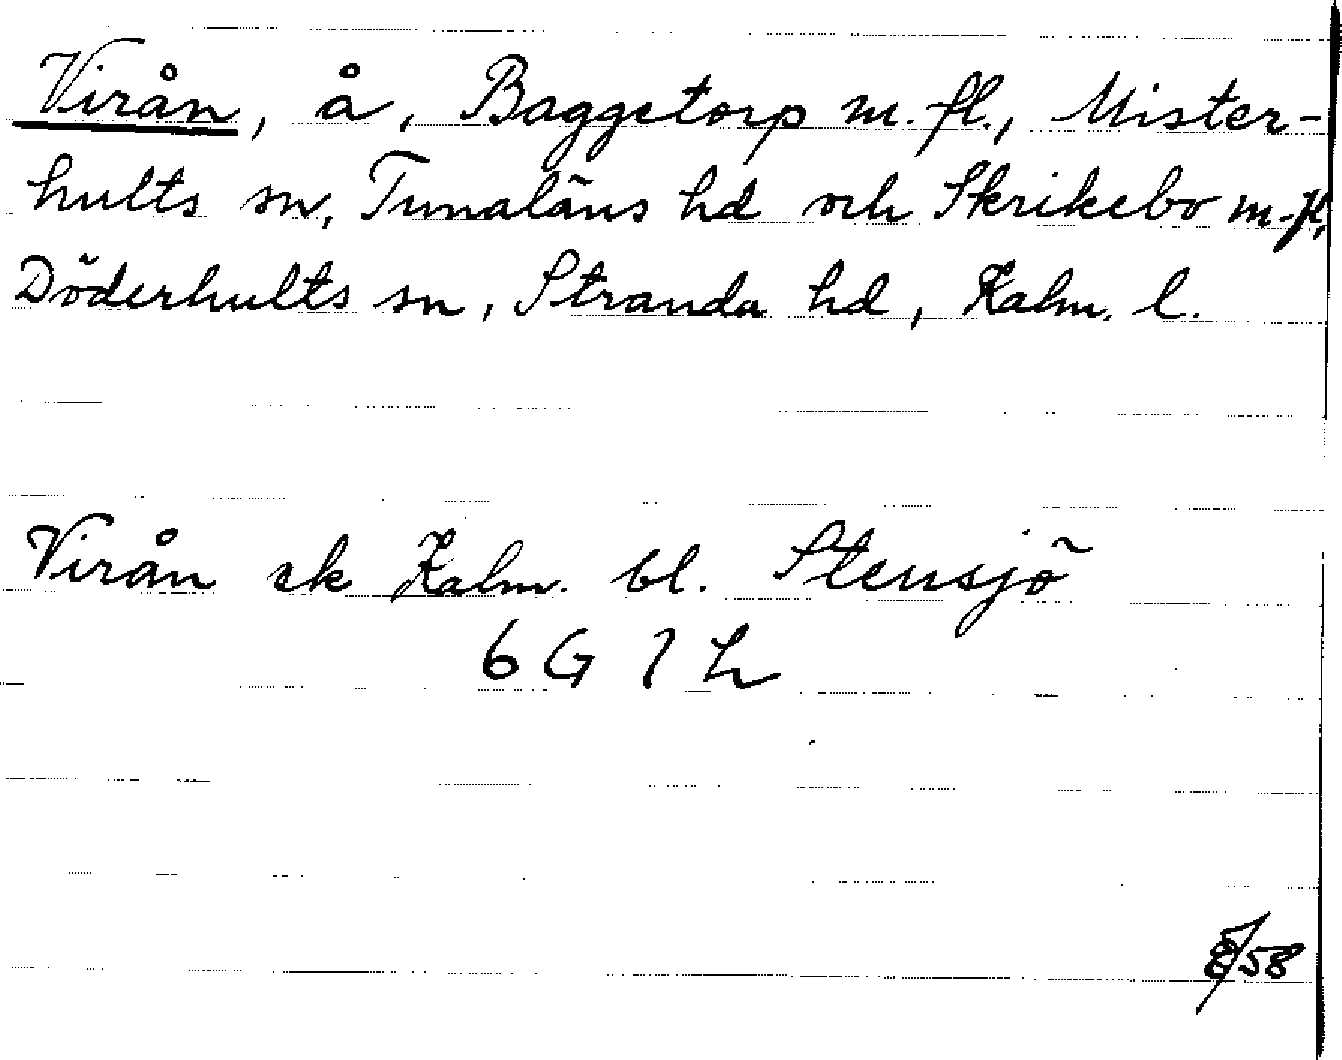 Virån, å, Baggetorp m.fl., Mister-
hults sn, Tunaläns hd och Skrikebo m.fl,
Döderhults sn, Stranda hd, Kalm. l.
Virån ek Kalm. bl. Stensjö
6 G 7 h
/58